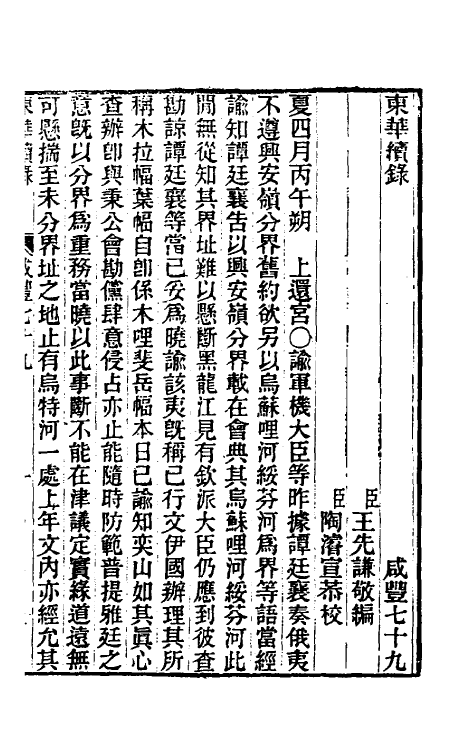 東華續錄　咸豐七十九
臣王先謙敬編
臣陶濬宣恭校
夏四月丙午朔　上還宮〇諭軍機大臣等昨據譚廷襄奏俄夷
不遵興安嶺分界舊約欲另以烏蘇哩河綏芬河為界等語當經
諭知譚廷襄吿以興安嶺分界載在會典其烏蘇哩河綏芬河此
間無從知其界址難以懸斷黑龍江見有欽派大臣仍應到彼查
勘諒譚廷襄等當已妥為曉諭該夷旣稱已行文伊國辦理其所
稱木拉幅葉幅自卽係木哩斐岳幅本日已諭知奕山如其眞心
查辦卽與秉公會勘儻肆意侵占亦止能隨時防範普提雅廷之
意旣以分界為重務當曉以此事斷不能在津議定實緣道遠無
可懸揣至未分界址之地止有烏特河一處上年文內亦經允其
東華續錄　咸豐七十九　一